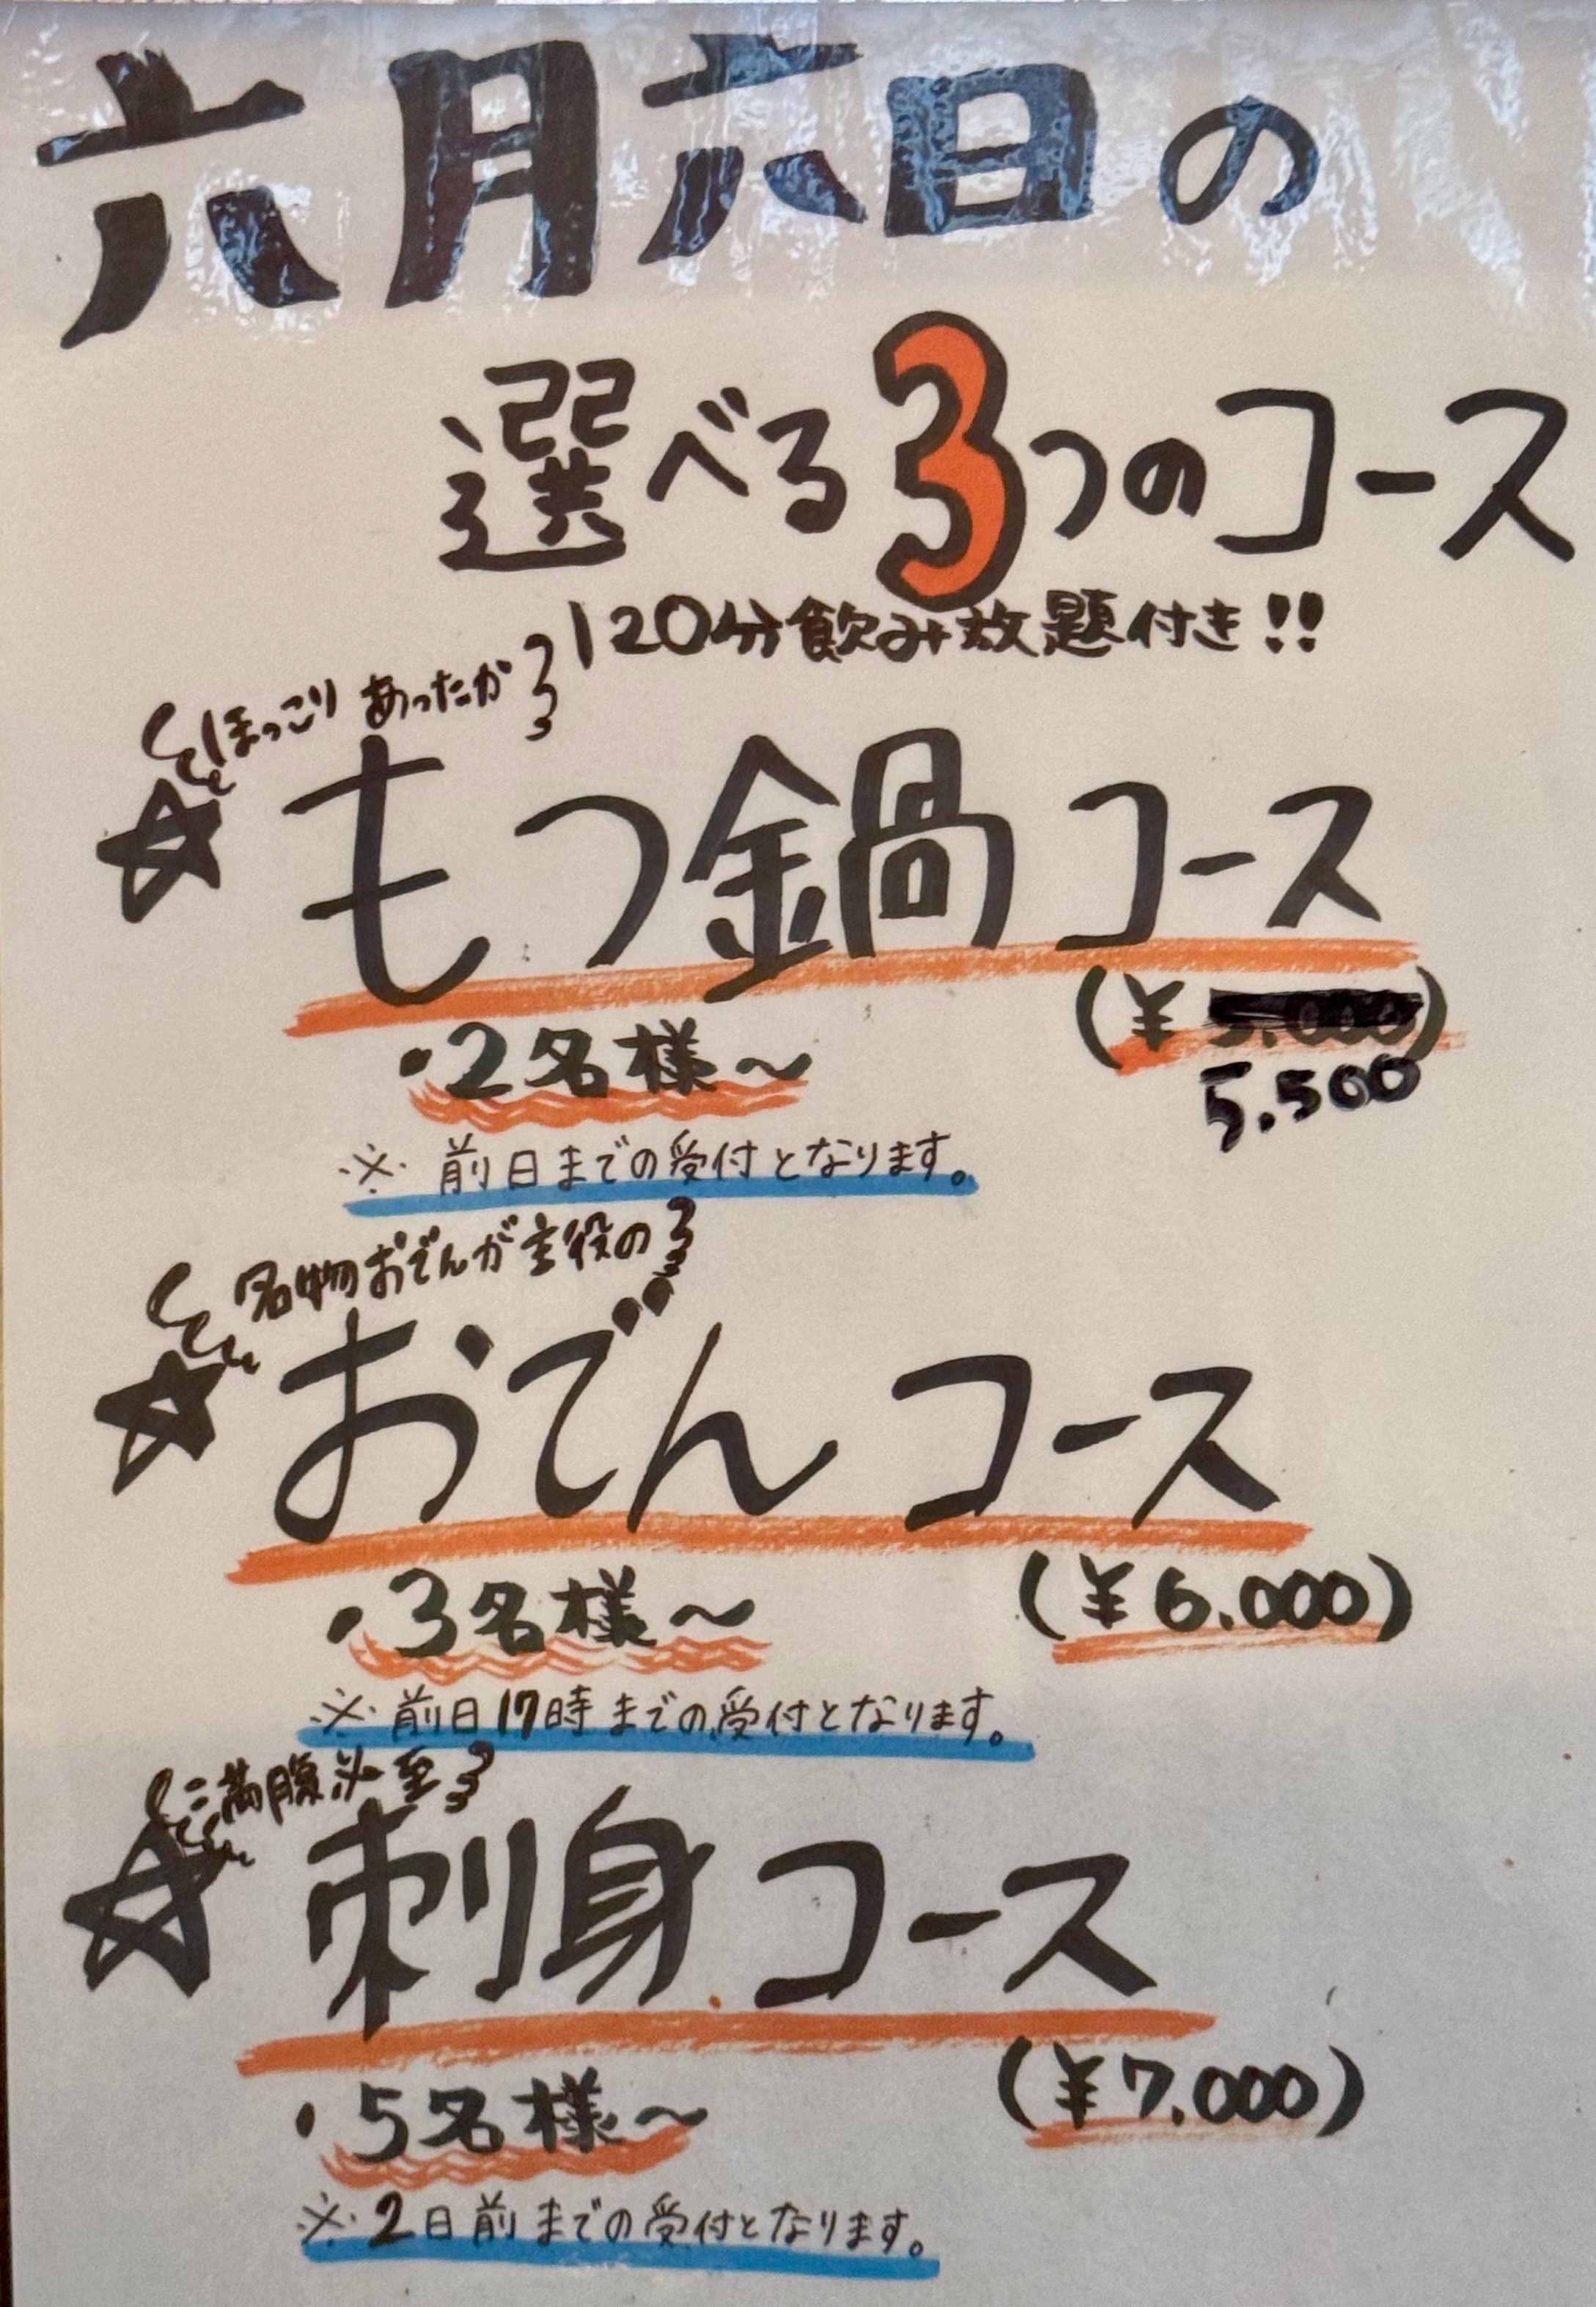 六月六日の
選べる3つのコース
120分飲み放題付き!!
ほっこり あったか
☆ もつ鍋コース
(¥5.000)
5.500
・2名様～
※ 前日までの受付となります。
名物おでんが主役の
☆ おでんコース
・3名様～ (¥6.000)
※ 前日17時までの受付となります。
満腹必至
☆ 刺身コース
・5名様～ (¥7.000)
※ 2日前までの受付となります。